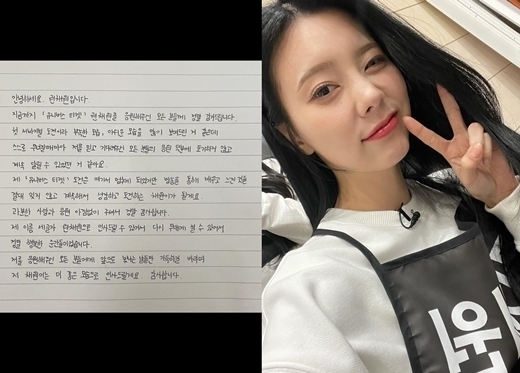 안녕하세요. 권채원입니다.
지금까지 '유니버스 티켓' 권채원을 응원해주신 모든 분들께 정말 감사드립니다.
첫 서바이벌 도전이라 부족한 모습, 아쉬운 모습을 많이 보여드린 거 같은데
스스로 무너질때마다 저를 믿고 기다려주신 모든 분들의 응원 덕분에 포기하지 않고
계속 달릴 수 있었던 거 같아요.
제 '유니버스 티켓' 도전은 여기서 멈추게 되었지만 방송을 통해 배우고 느낀 것을
절대 잊지 않고 계속해서 성장하고 도전하는 채원이가 될게요.
과분한 사랑과 응원 아낌없이 주셔서 정말 감사합니다.
제 이름 세글자 권채원으로 인사드릴 수 있어서 다시 무대에 설 수 있어서
정말 행복한 순간들이었습니다.
저를 응원해주신 모든 분들에게 앞으로 행복한 날들만 가득하길 바라며
저 채원이는 더 좋은 모습으로 인사드릴게요. 감사합니다.
원